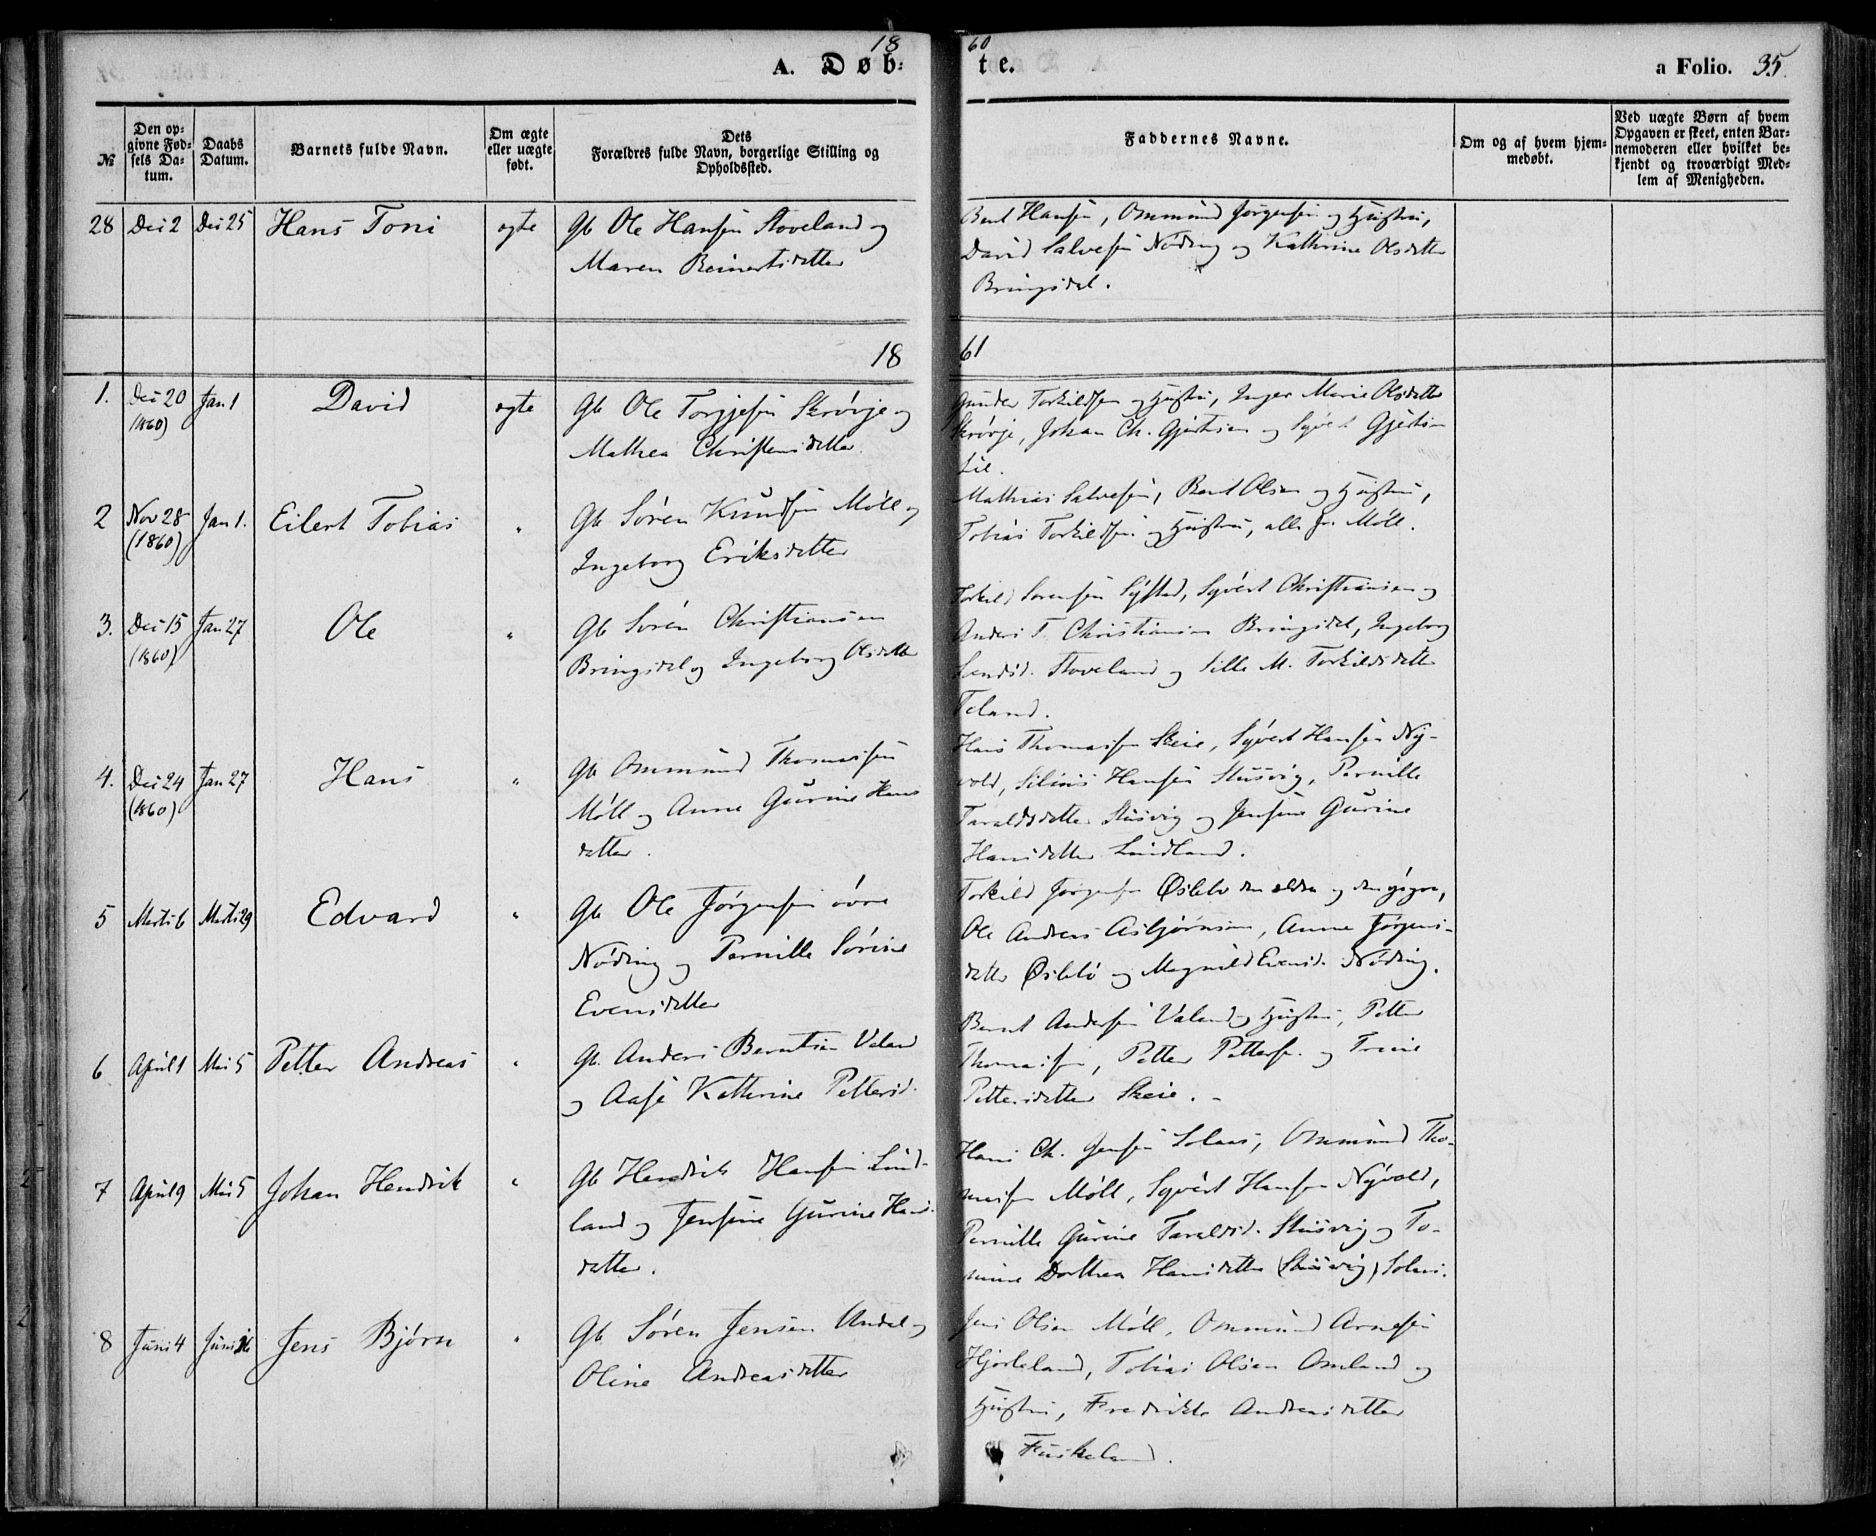 18 60
A. Døb-te. a Folio. 35.
№
Den opgivne Fødsels Datum.
Daabs Datum.
Barnets fulde Navn.
Om ægte eller uægte født.
Dets Forældres fulde Navn, borgerlige Stilling og Opholdssted.
Faddernes Navne.
Om og af hvem hjemmedøbt.
Ved uægte Børn af hvem Opgaven er skeet, enten Barnemoderen eller hvilket bekjendt og troværdigt Medlem af Menigheden.
28 Dec 2 Dec 25 Hans Toni egte Gb Ole Hansen Stoveland og
Maren Reinertsdatter
Bent Hansen, Ommund Jørgensen og Hustru,
David Salvesen Nøding og Kathrine Olsdatter
Bringsdal.
18 61
1. Dec 20 (1860) Jan 1 David egte Gb Ole Torgjesen Skrøvje og
Mathea Christensdatter
Gunder Torkildsen og Hustru, Inger Marie Olsdatter
Skrøvje, Johan Ch. Gjertsen og Syvert Gjertsen
Lie.
2 Nov 28 (1860) Jan 1. Eilert Tobias " Gb Søren Knudsen Møll og
Ingeborg Eriksdatter
Mathias Salvesen, Bent Olsen og Hustru,
Tobias Torkildsen og Hustru, alle fr. Møll.
3. Dec 15 (1860) Jan 27 Ole " Gb Søren Christiansen
Bringsdal og Ingeborg Olsdatter
Torkild Sørensen Sÿstad, Syvert Christiansen og
Anders T. Christiansen Bringsdal, Ingeborg
Stoveland og Sille M. Torkildsdatter
Toland.
4. Dec 24 (1860) Jan 27 Hans " Gb Ommund Thomassen
Møll og Anne Gurine Hans
datter.
Hans Thomassen Skeie, Syvert Hansen Ny-
vold, Silius Hansen Stusvig, Pernille
Taraldsdatter Stusvig og Jensine Gurine
Hansdatter Lindland.
5 Marts 6 Marts 29 Edvard " Gb Ole Jørgensen øvre
Nøding og Pernille Sørine
Evensdatter
Torkild Jørgensen Øslebø den eldre og den yngre,
Ole Andreas Asbjørnsen, Anne Jørgens-
datter Øslebø og Magnild Evensd. Nøding.
6 April 1 Mai 5 Petter Andreas " Gb. Anders Berntsen Valand
og Aase Kathrine Pettersd.
Bernt Andersen Valand og Hustru, Petter
Thomassen, Petter Petters. og Trine
Pettersdatter Skeie. -
7 April 9 Mai 5 Johan Hendrik " Gb Hendrik Hansen Lind-
land og Jensine Gurine Hans-
datter.
Hans Ch. Jensen Solaas, Ommund Tho-
massen Møll, Syvert Hansen Nyvold,
Pernille Gurine Taraldsd. Stusvig og To-
mine Dorthea Hansdatter (Stusvig) Solaas.
8 Juni 4 Juni 16 Jens Bjørn " Gb Søren Jensen Andal og
Oline Andreasdatter
Jens Olsen Møll, Ommund Arnesen
Hjorteland, Tobias Olsen Omland og
Hustru, Fredrikke Andreasdatter
Fuskeland.